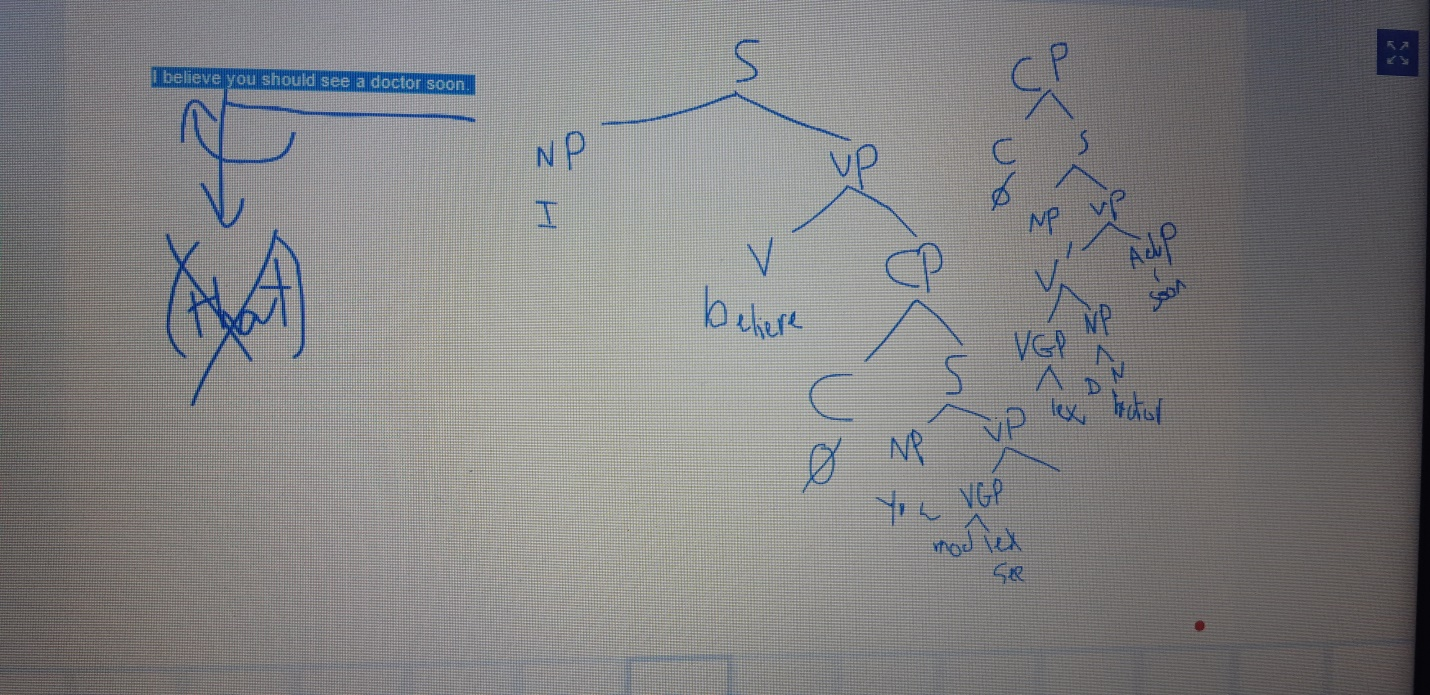 I believe you should see a doctor soon.
(that)
S
NP VP
I
V CP
believe
C S
Ø NP VP
you VGP
mod lex
see
CP
C S
Ø NP VP
V' AdvP
soon
VGP NP
lex D N
doctor